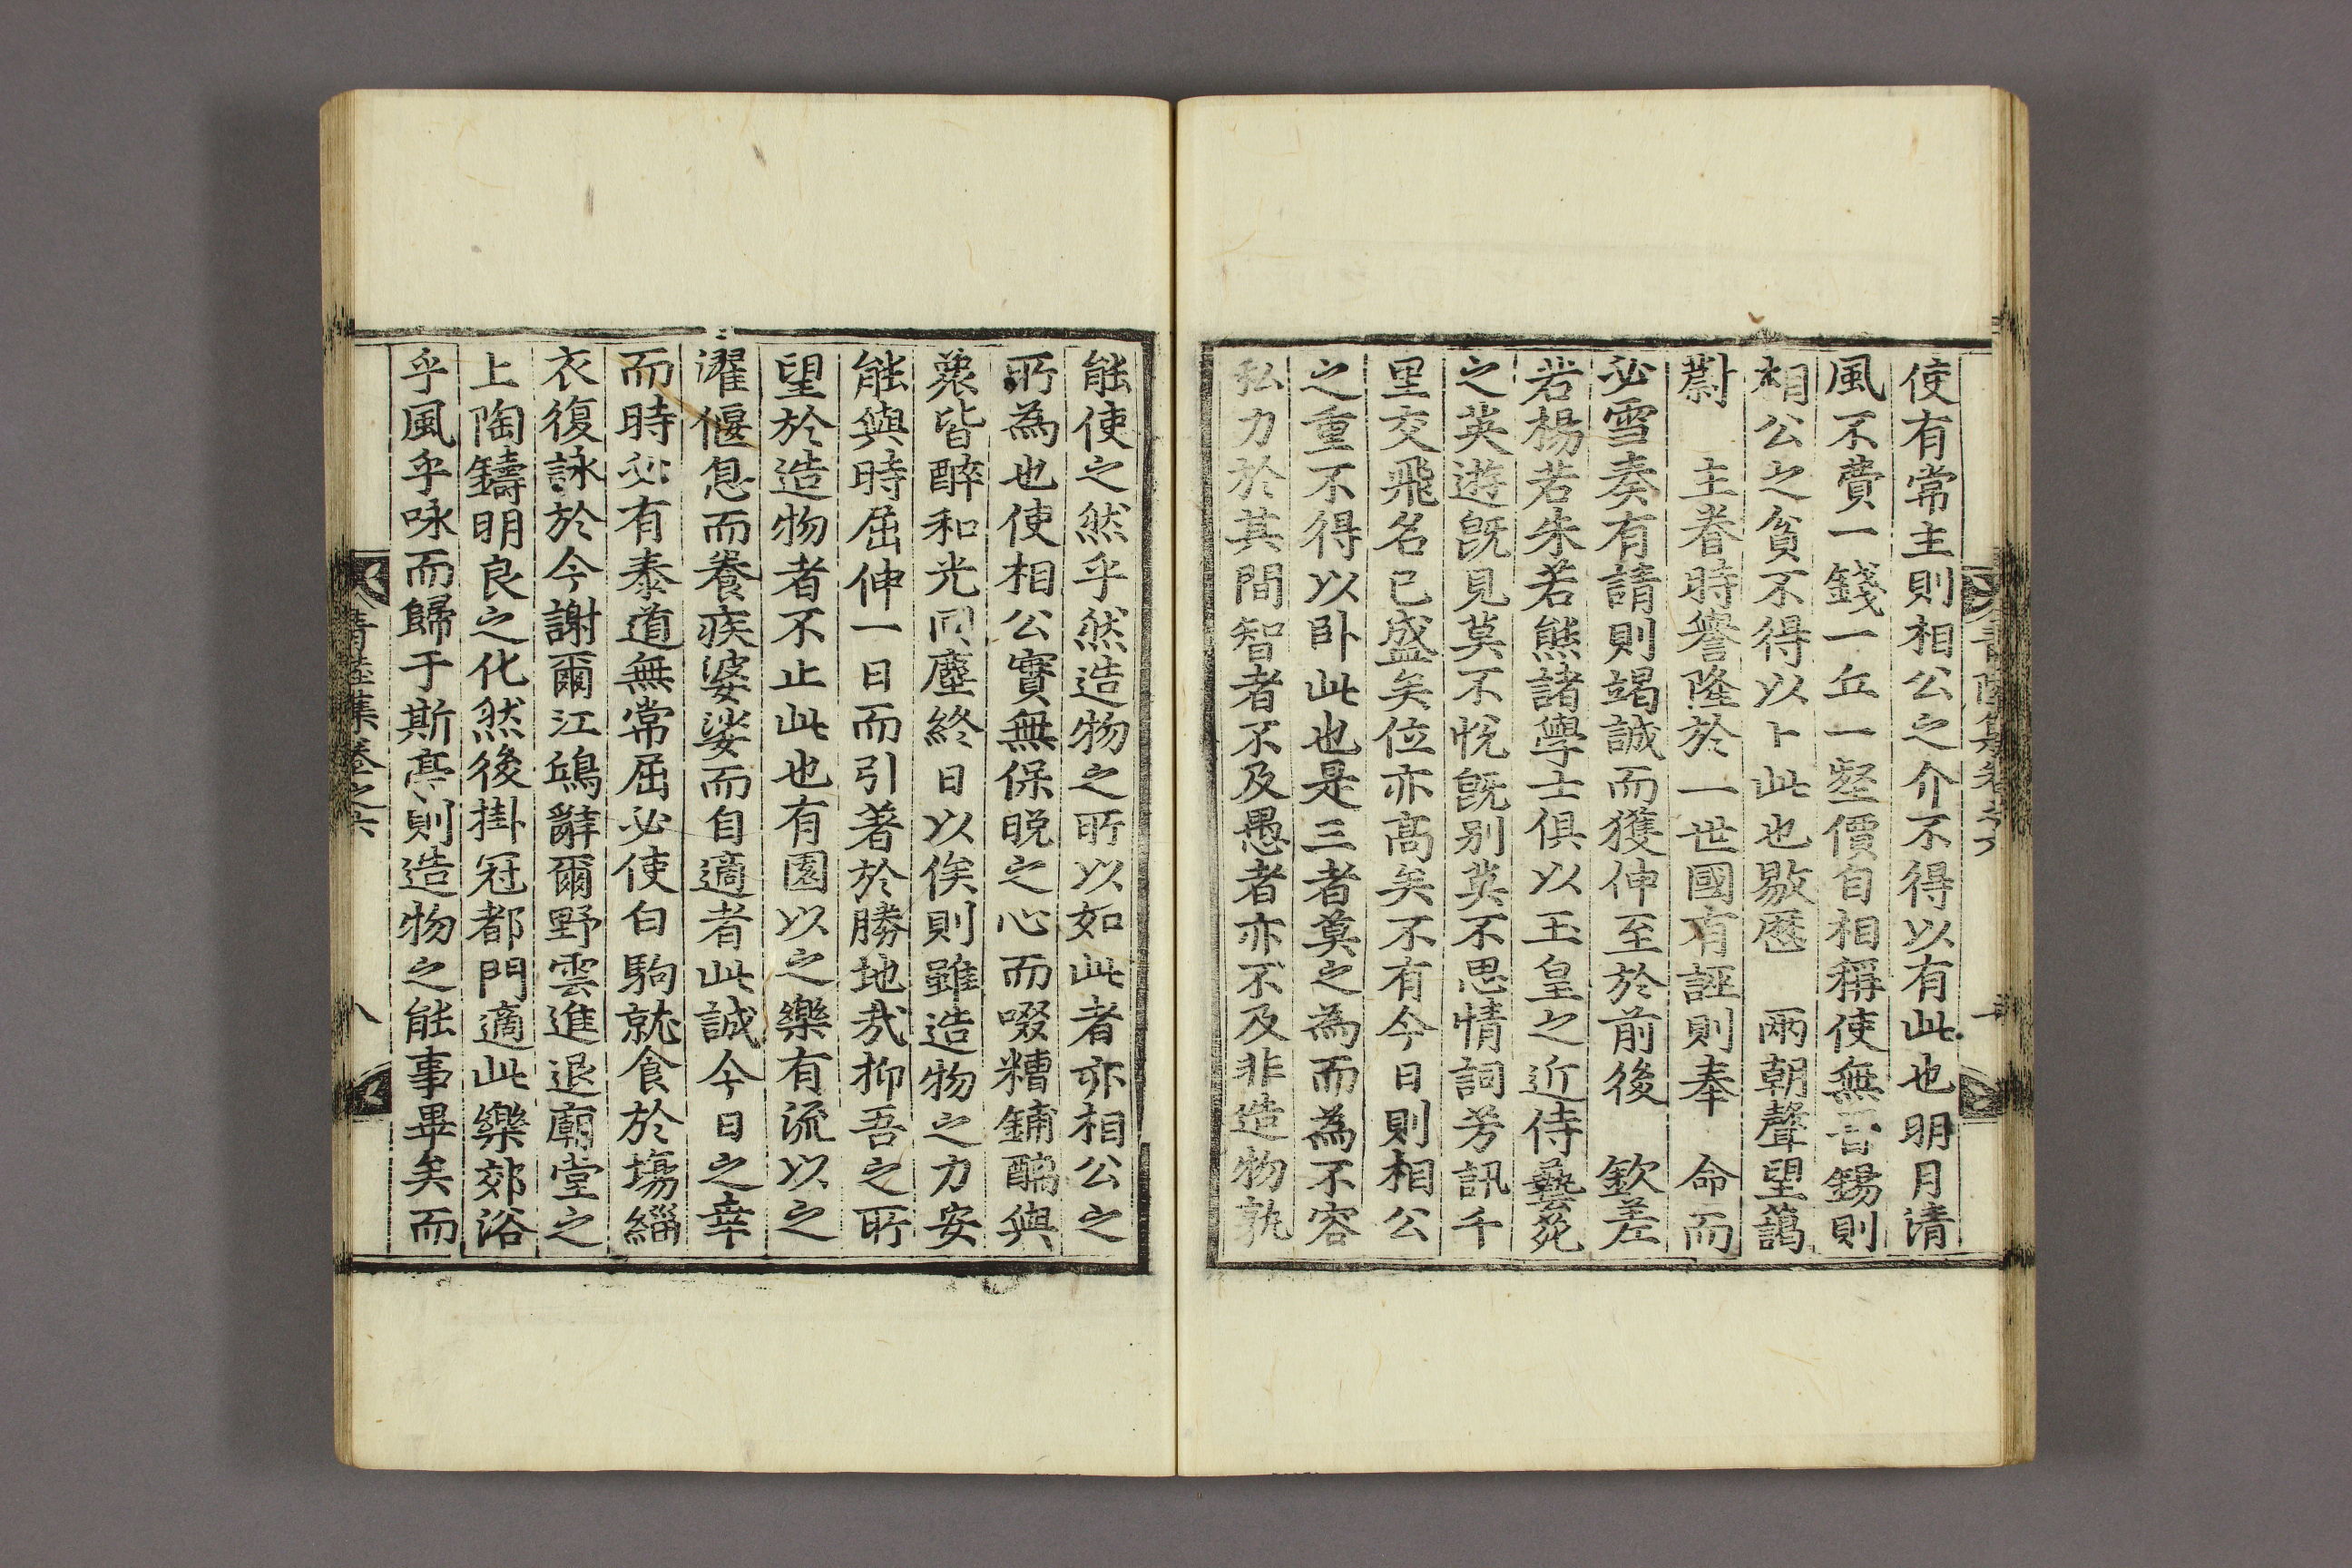 使有常主則相公之介不得以有此也明月淸
風不費一錢一丘一壑價自相稱使無晉錫則
相公之貧不得以卜此也敭歷 兩朝聲望藹
蔚 主眷時譽隆於一世國有誣則奉 命而
必雪奏有請則竭誠而獲伸至於前後 欽差
若楊若朱若熊諸學士俱以玉皇之近侍藝苑
之英遊旣見莫不悅旣別莫不思情詞芳訊千
里交飛名已盛矣位亦高矣不有今日則相公
之重不得以卧此也是三者莫之為而為不容
私力於其間智者不及愚者亦不及非造物孰
能使之然乎然造物之所以如此者亦相公之
所為也使相公實無保晚之心而啜糟餔醨與
衆皆醉和光同塵終日以俟則雖造物之力安
能與時屈伸一日而引著於勝地哉抑吾之所
望於造物者不止此也有園以之樂有流以之
濯偃息而養疾婆娑而自適者此誠今日之幸
而時必有泰道無常屈必使白駒就食於場緇
衣復詠於今謝爾江鴻辭爾野雲進退廟堂之
上陶鑄明良之化然後掛冠都門適此樂郊浴
乎風乎咏而歸于斯亭則造物之能事畢矣而
靑陸集卷之六 八